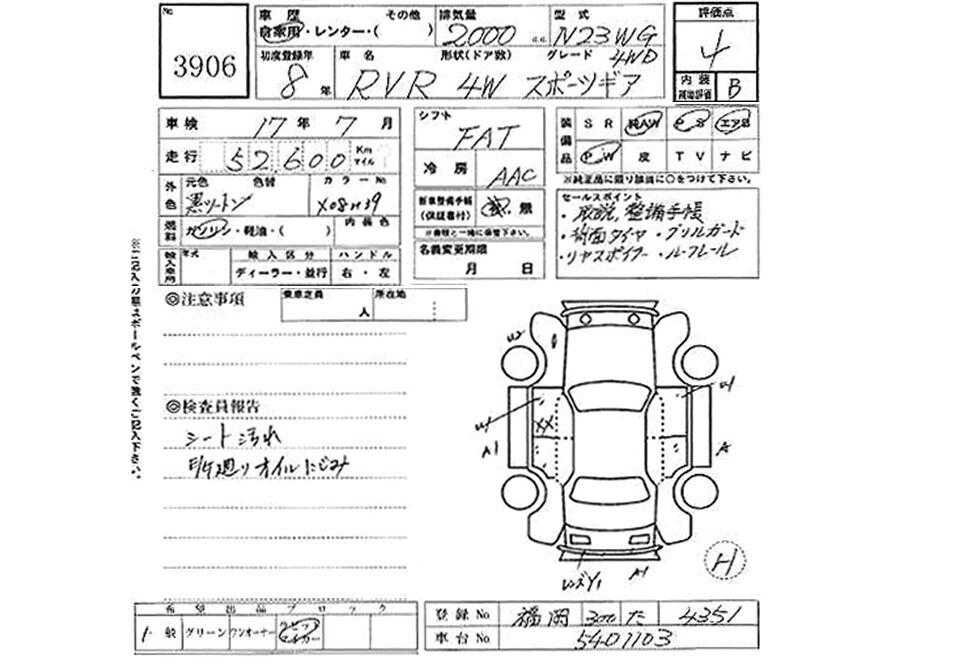 No 3906
車歴 自家用・レンター・( ) その他
排気量 2000 c.c.
型式 N23WG
初度登録年 8年
車名 RVR
形状(ドア数) 4W
グレード 4WD スポーツギア
評価点 4
内装 補助評価 B
車検 17年7月
走行 52,600 Km マイル
外色 元色 黒ツートン 色替
カラーNo X08H39
燃料 ガソリン・軽油・( )
内装色
輸入車用 年式
輸入区分 ディーラー・並行
ハンドル 右・左
シフト FAT
冷房 AAC
新車整備手帳 (保証書付) 有・無
※書類と一緒に保管下さい。
名義変更期限
月 日
装備品 SR 純AW PS エアB
PW 皮 TV ナビ
※純正品に限り該当に○をつけて下さい。
セールスポイント
・取説,整備手帳
・背面タイヤ・グリルガード
・リヤスポイラー・ルーフレール
※に記入の際はボールペンで強くご記入下さい。
◎注意事項
乗車定員 人
所在地
◎検査員報告
シート汚れ
オイルにじみ
U2
U1
XX
A1
U1
A
レンズY1
A1
H
希望出品ブロック
一般 グリーン ワンオーナー
登録No 福岡 300 た 4351
車台No 5401103